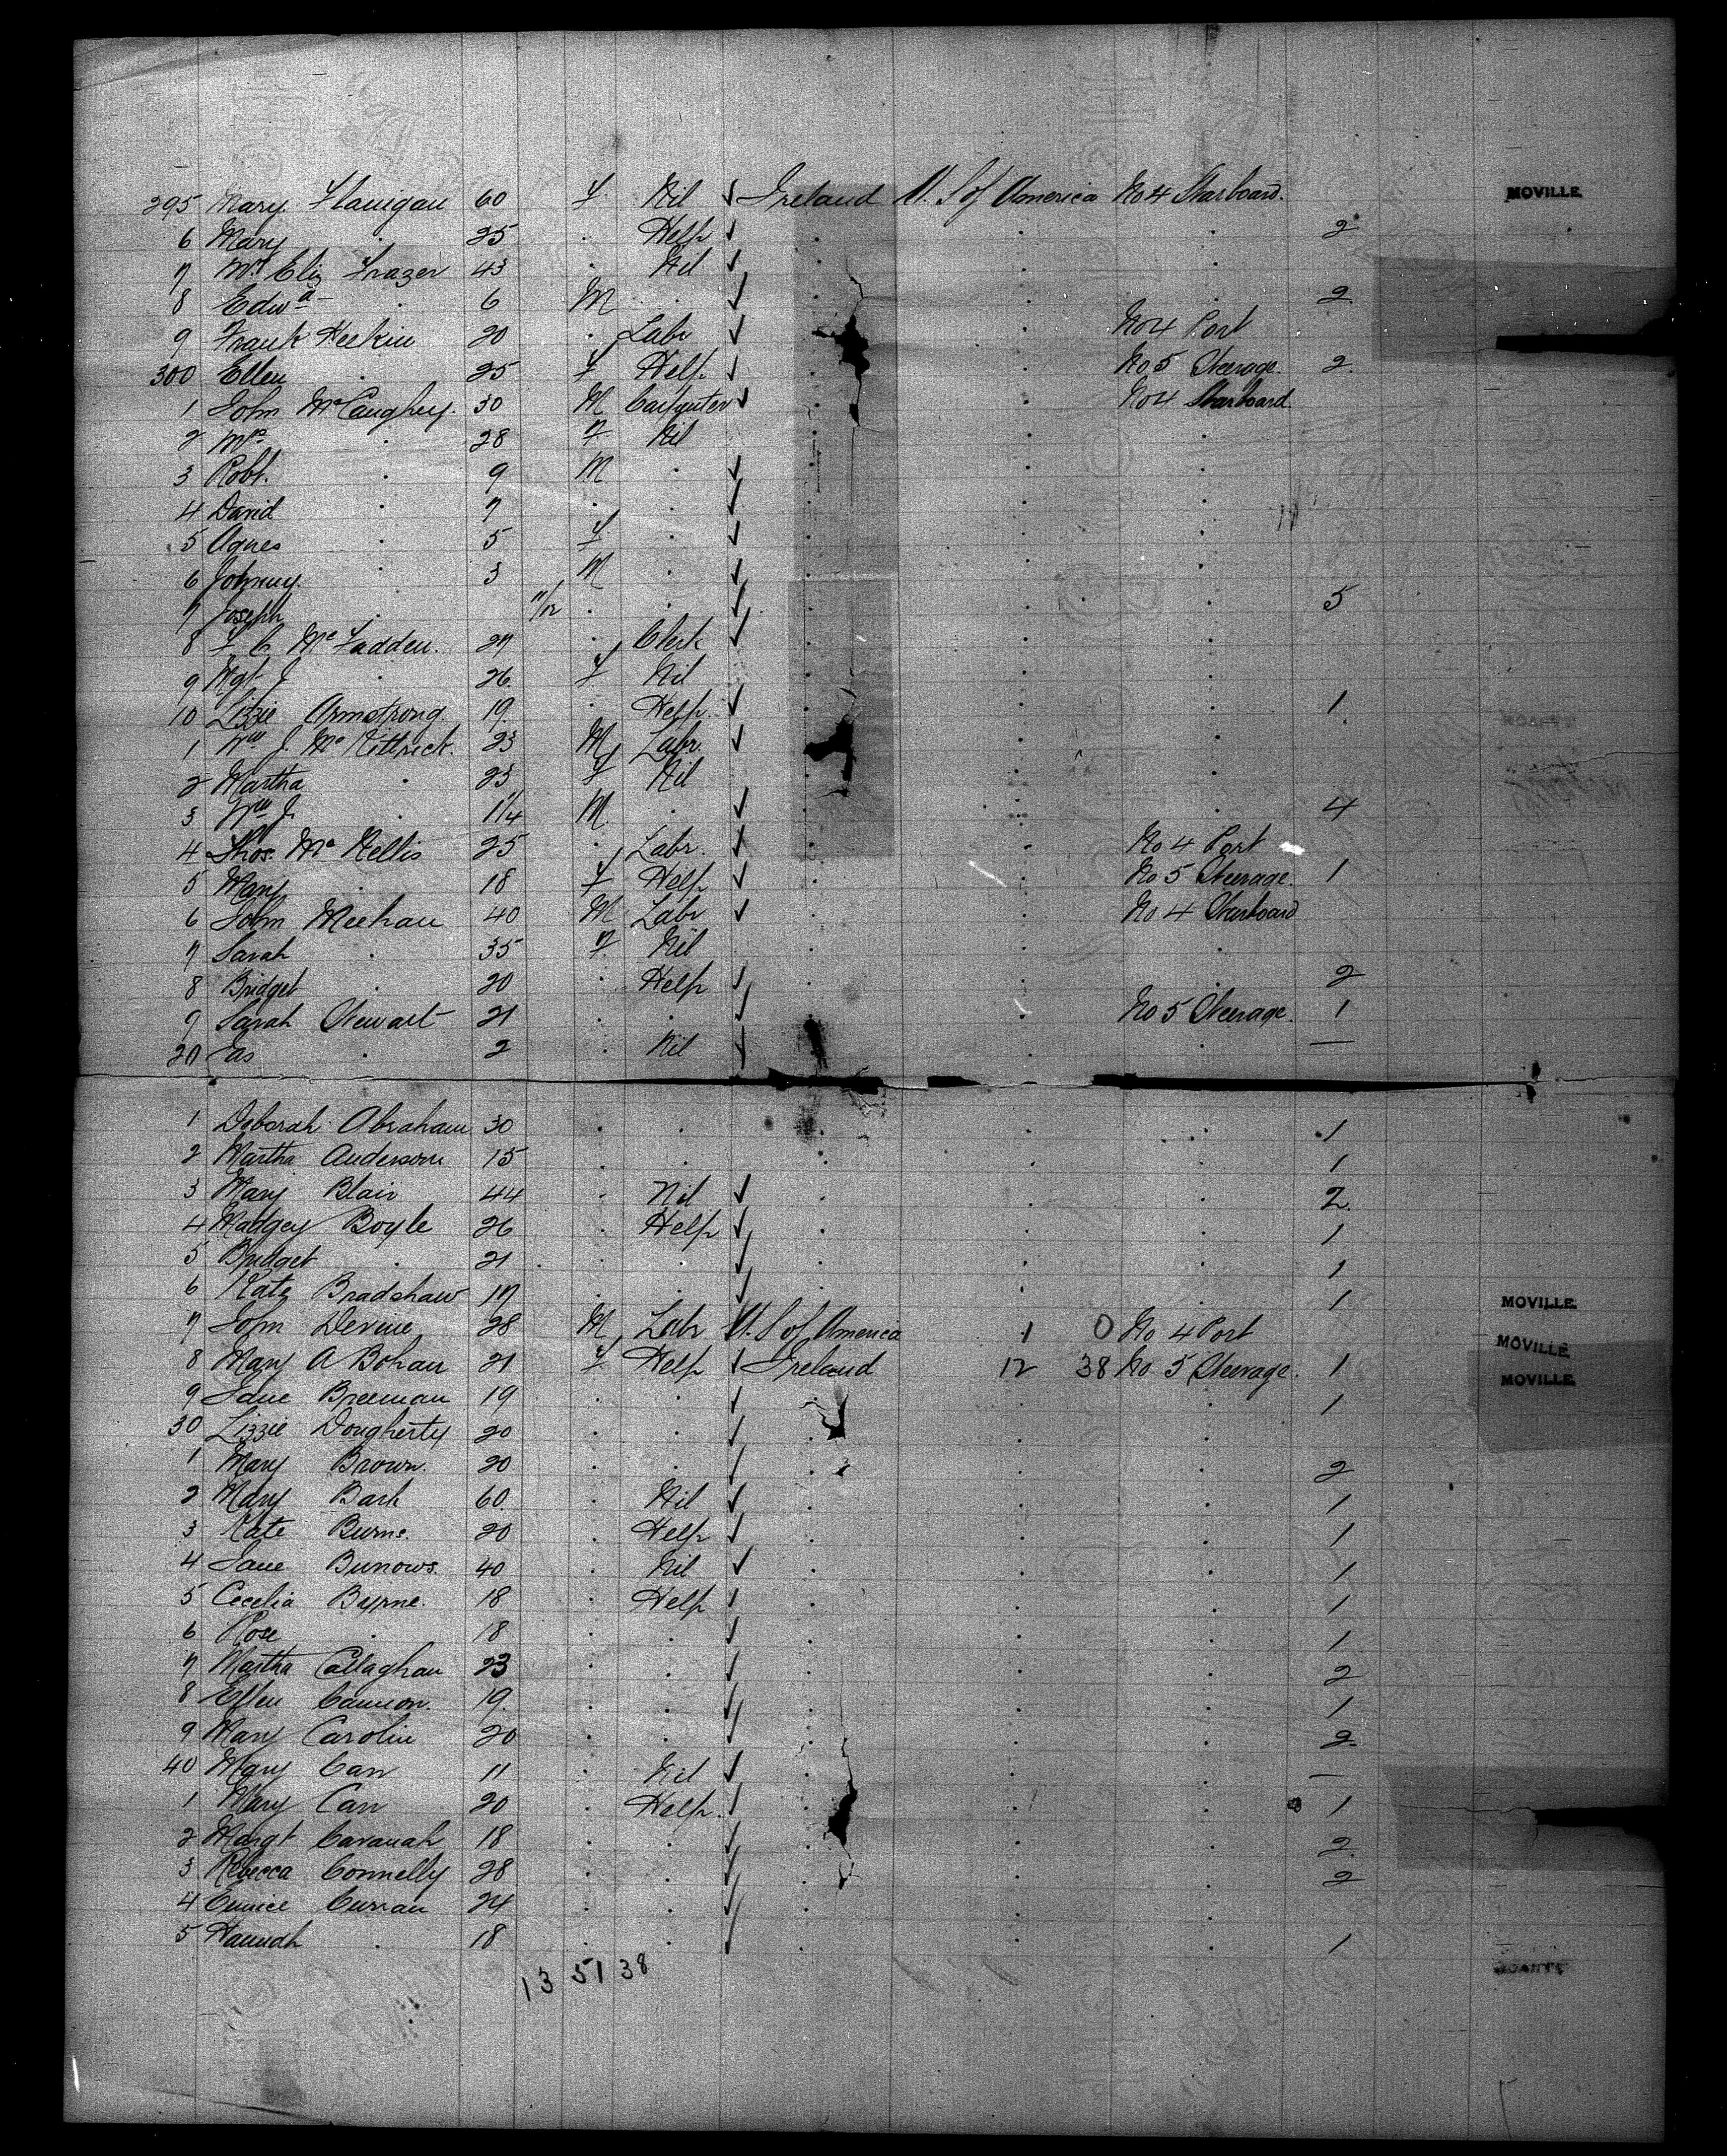 295 Mary Flanigan 60 F Nil ✓ Ireland U. S of America No 4 Starboard. MOVILLE
6 Mary . 25 . Help ✓ . . . 2
7 Mrs Eliz Frazer 43 . Nil ✓ . . .
8 Edwd . 6 M . ✓ . . . 2
9 Frank Heskin 20 . Labr ✓ . No 4 Port
300 Ellen . 25 F Help ✓ . . No 5 Steerage. 2
1 John McCaughey. 30 M Carpenter ✓ . . No 4 Starboard.
2 Mrs . 28 F Nil . . .
3 Robt. . 9 M . ✓ . . .
4 David . 7 . . ✓ . . .
5 Agnes . 5 F . ✓ . . .
6 Johnny . 3 M . ✓ . . .
7 Joseph . 11/12 . . ✓ . . . 5
8 F C McFadden. 27 . Clerk ✓ . . .
9 Mgt J . 26 F Nil . . .
10 Lizzie Armstrong. 19 . Help ✓ . . . 1
1 Wm J. McKittrick. 23 M Labr. ✓ . . .
2 Martha . 23 F Nil . . .
3 Wm J. . 1 1/4 M . ✓ . . . 4
4 Thos. McNellis 25 . Labr. ✓ . . No 4 Port
5 Mary . 18 F Help ✓ . . No 5 Steerage. 1
6 John Meehan 40 M Labr ✓ . . No 4 Starboard
7 Sarah . 35 F Nil . .
8 Bridget . 20 . Help ✓ . . . 2
9 Sarah Stewart 21 . . ✓ . . No 5 Steerage. 1
20 Jas . 2 . Nil ✓ . . . —
1 Deborah Abraham 30 . . . . . 1
2 Martha Anderson 15 . . . . . 1
3 Mary Blair 44 . Nil ✓ . . . 2.
4 Madgey Boyle 26 . Help ✓ . . . 1
5 Bridget . 21 . . ✓ . . . 1
6 Kate Bradshaw 17 . . ✓ . . . 1 MOVILLE
7 John Devine 28 M Labr U. S of America 1 0 No 4 Port MOVILLE
8 Mary A Bohan 21 F Help ✓ Ireland 12 38 No 5 Steerage. 1 MOVILLE
9 Jane Breeman 19 . . ✓ . . . 1
30 Lizzie Dougherty 20 . . ✓ . . .
1 Mary Brown. 20 . . ✓ . . . 2
2 Mary Bark 60. . Nil ✓ . . . 1
3 Kate Burns. 20 . Help ✓ . . . 1
4 Jane Burrows. 40 . Nil ✓ . . . 1
5 Cecelia Byrne. 18 . Help ✓ . . . 1
6 Rose . 18 . . ✓ . . . 1
7 Martha Callaghan 23 . . ✓ . . . 2
8 Ellen Cannon. 19. . . ✓ . . . 1
9 Mary Carolin 20 . . ✓ . . . 2
40 Mary Carr 11 . Nil ✓ . . . —
1 Mary Carr 20 . Help. ✓ . . . 1
2 Margt Cavanah 18 . . ✓ . . . 2
3 Rebecca Connelly 28 . . ✓ . . . 2
4 Eunice Curran 24 . . ✓ . . .
5 Hannah . 18 . . ✓ . . . 1
13 51 38